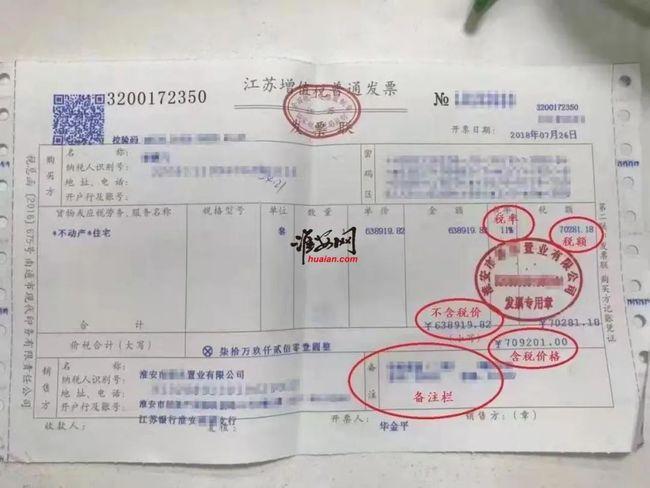 江苏增值税普通发票
3200172350
№
3200172350
发票联
校验码
开票日期: 2018年07月26日
购买方
名 称:
纳税人识别号:
地 址、电 话:
开户行及账号:
密码区
货物或应税劳务、服务名称 规格型号 单位 数量 单价 金额 税率 税额
*不动产*住宅 套 638919.82 638919.82 11% 70281.18
税率
税额
淮安网
huaian.com
淮安市 置业有限公司
发票专用章
不含税价
合 计 ¥638919.82 ¥70281.18
价税合计(大写) ⊗柒拾万玖仟贰佰零壹圆整 (小写) ¥709201.00
含税价格
销售方
名 称: 淮安市 置业有限公司
纳税人识别号:
地 址、电 话: 淮安市
开户行及账号: 江苏银行淮安
备注
备注栏
收款人: 复核: 开票人: 华金平 销售方:(章)
税总函[2016]675号南通市现代印务有限责任公司
第二联:发票联 购买方记账凭证